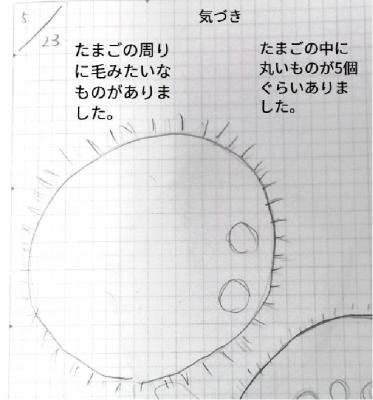 5/23
気づき
たまごの周り
に毛みたいな
ものがありま
した。
たまごの中に
丸いものが5個
ぐらいありま
した。